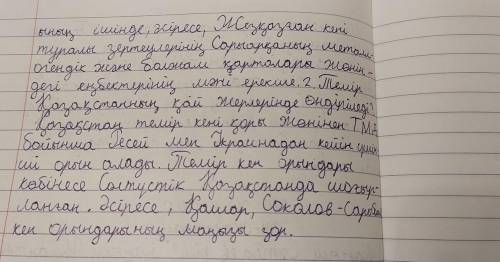 ының ішінде, әсіресе, Жезқазған кені
туралы зерттеулерінің Сарыарқаның металл-
огендік және болжам карталары жөнін-
дегі еңбектерінің мәні ерекше. 2. Темір
Қазақстанның қай жерлерінде өндіріледі?
Қазақстан темір кені қоры жөнінен ТМД
бойынша Ресей мен Украинадан кейін үшін-
ші орын алады. Темір кен орындары
көбінесе Солтүстік Қазақстанда шоғыр-
ланған. Әсіресе, Қашар, Соколов-Сарыбай
кен орындарының маңызы зор.